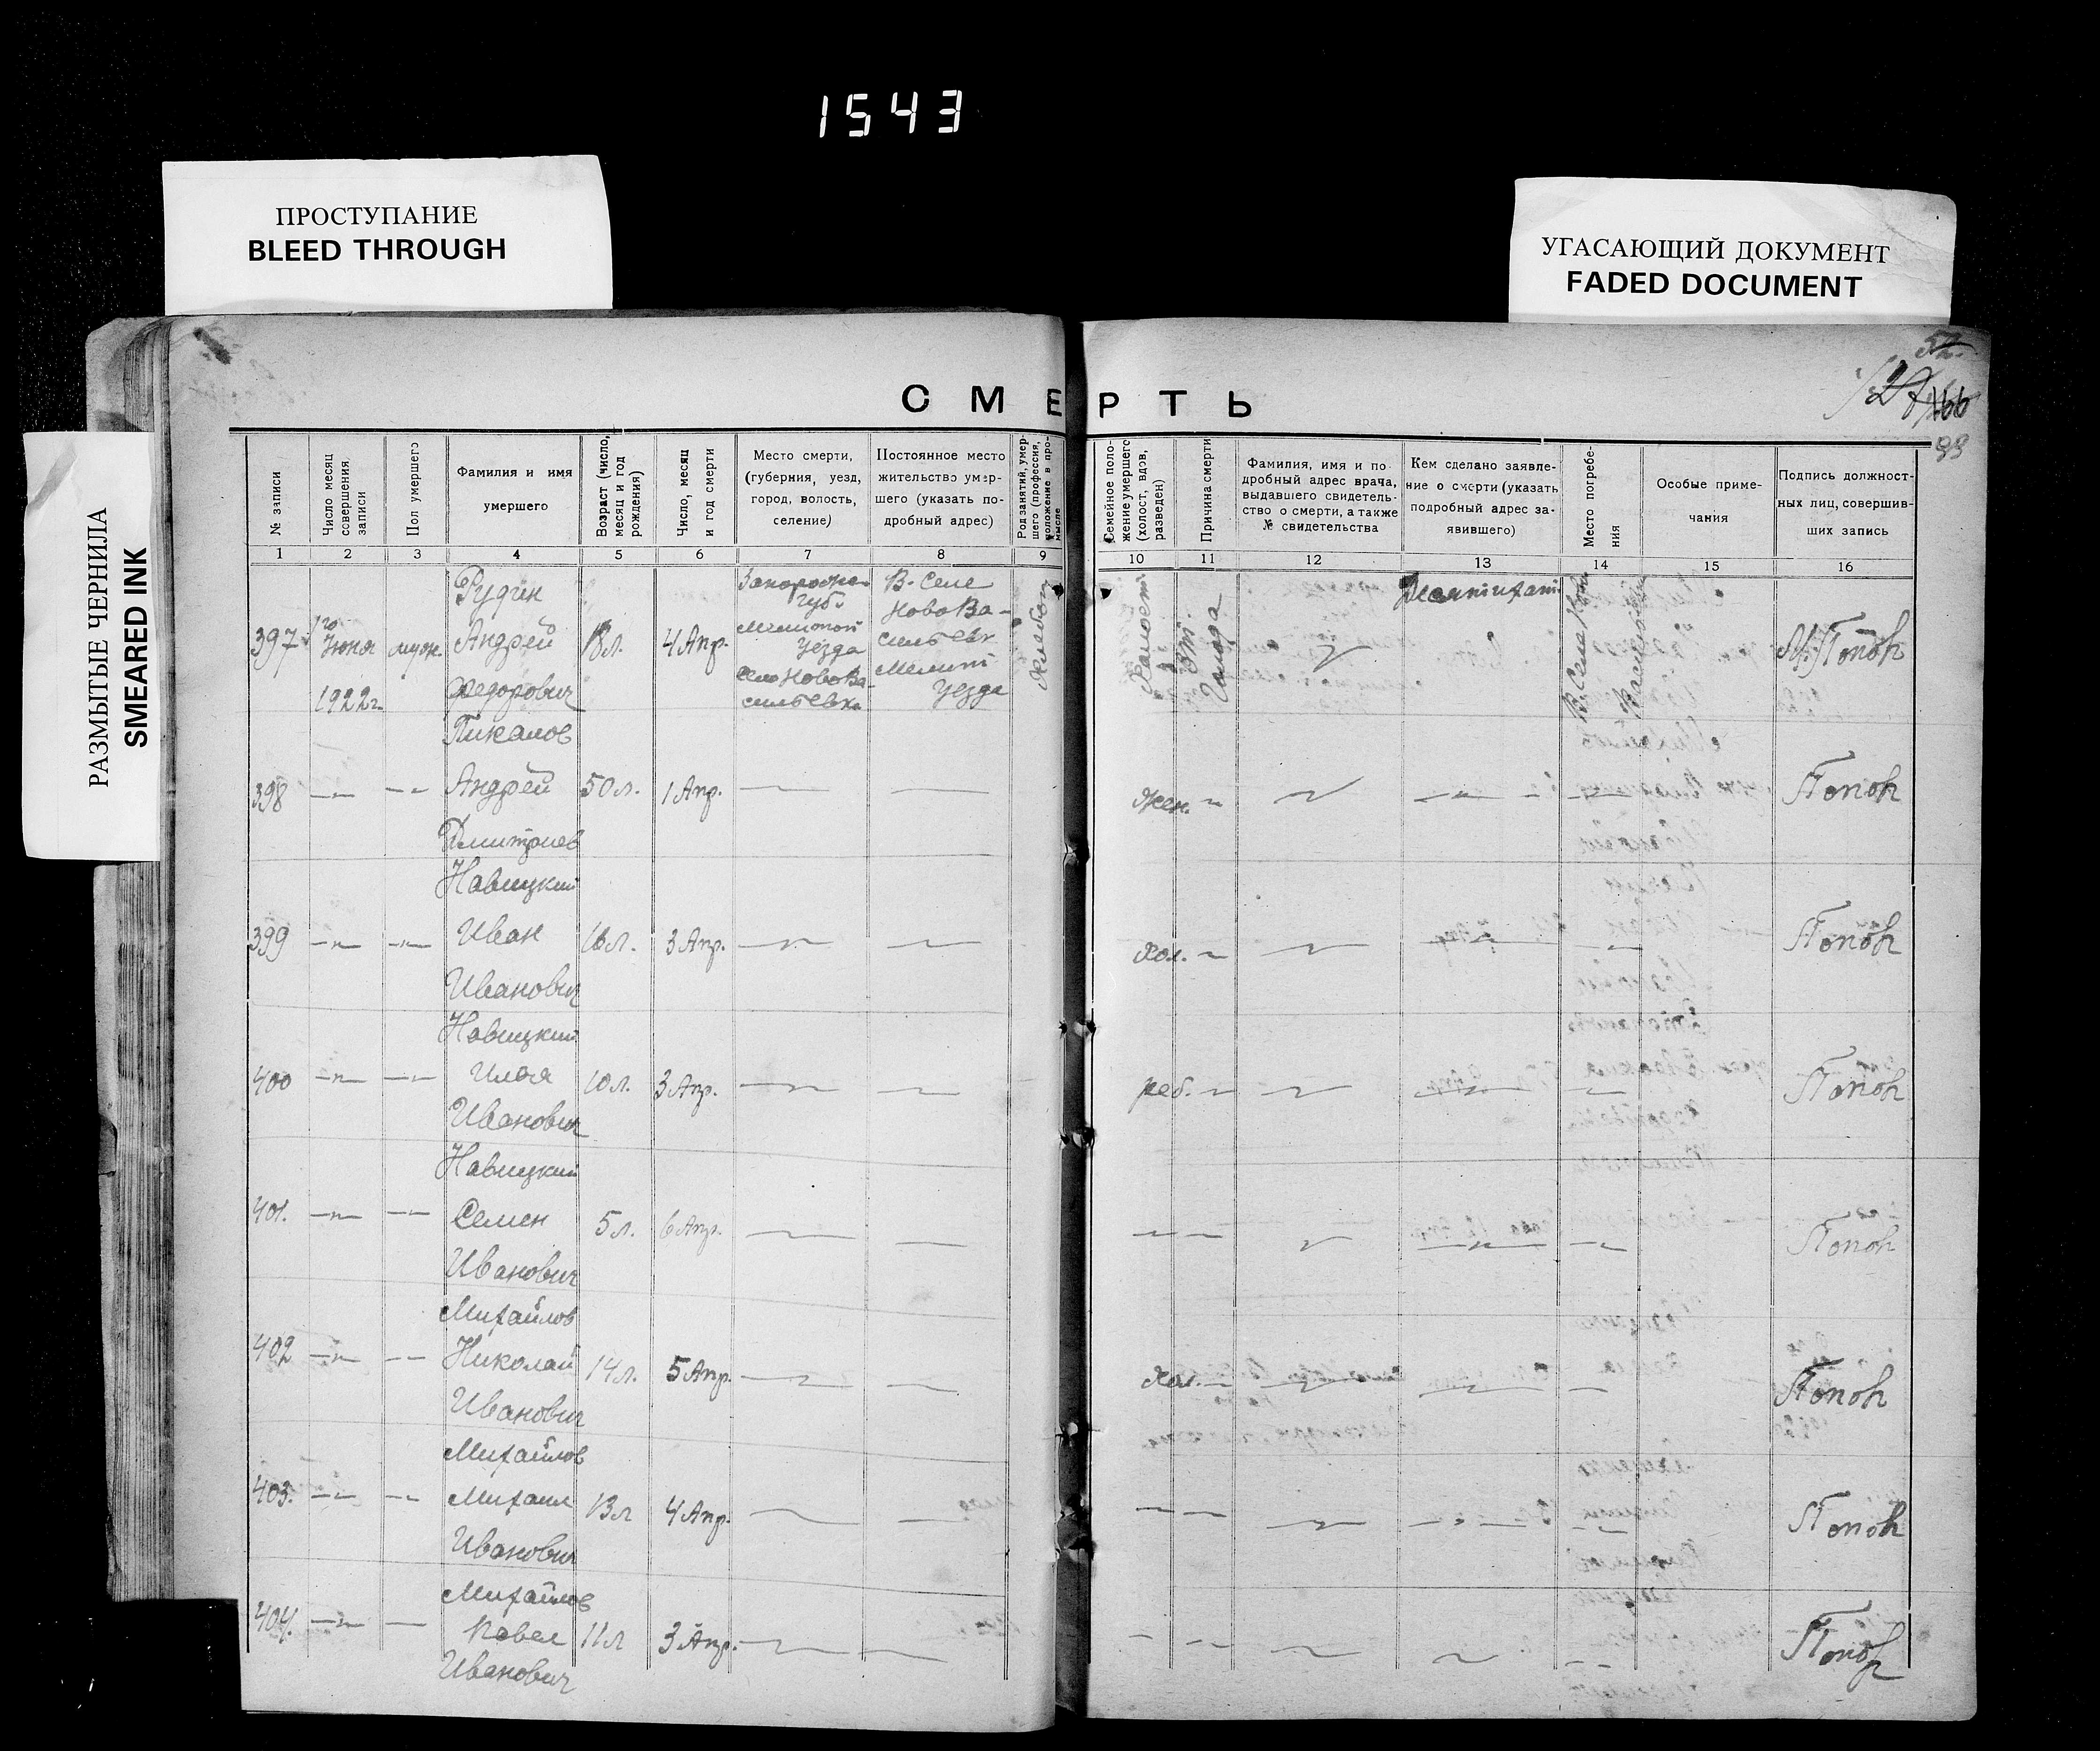 1543
ПРОСТУПАНИЕ
BLEED THROUGH
УГАСАЮЩИЙ ДОКУМЕНТ
FADED DOCUMENT
РАЗМЫТЫЕ ЧЕРНИЛА
SMEARED INK
52.
166
99
СМЕРТЬ
№ записи
Число месяц
совершения
записи
Пол умершего
Фамилия и имя
умершего
Возраст (число,
месяц и год
рождения)
Число, месяц
и год смерти
Место смерти,
(губерния, уезд,
город, волость,
селение)
Постоянное место
жительство умер-
шего (указать по-
дробный адрес)
Род занятий умер-
шего (профессия,
положение в про-
мысле
Семейное поло-
жение умершего
(холост, вдов,
разведен)
Причина смерти
Фамилия, имя и по-
дробный адрес врача,
выдавшего свидетель-
ство о смерти, а также
№ свидетельства
Кем сделано заявле-
ние о смерти (указать
подробный адрес за-
явившего)
Место погребе-
ния
Особые приме-
чания
Подпись должност-
ных лиц, совершив-
ших запись
1 2 3 4 5 6 7 8 9 10 11 12 13 14 15 16
397 1го Июня 1922г. муж.
Рудин
Андрей
Федорович
18л. 4 Апр.
Запорожс.
губ.
Мелитопол
уезда
Село НовоВа-
сильевка
В. Селе
НовоВа-
сильевк
Мелит
Уезда
Хлебоп
Холост
От Голода
В. Селе Ново Васильевк
Попов
398 —"— —"—
Пикалов
Андрей
Дмитриев
50л. 1 Апр. жен. Попов
399 —"— —"—
Навицкий
Иван
Иванович
16л. 3 Апр. Хол. Попов
400 —"— —"—
Навицкий
Илья
Иванович
10л. 3 Апр. реб. Попов
401. —"— —"—
Навицкий
Семен
Иванович
5л. 6 Апр. Попов
402 —"— —"—
Михайлов
Николай
Иванович
14л. 5 Апр. Хол. Попов
403. —"— —"—
Михайлов
Михаил
Иванович
13л 4 Апр. Попов
404. —"— —
Михайлов
Павел
Иванович
11л 3 Апр. Попов